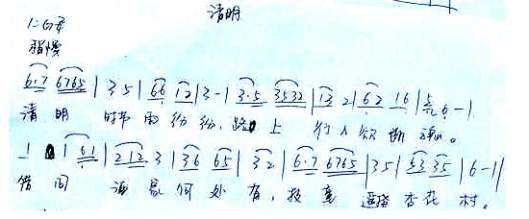 清明
1=G 2/4
稍慢
6·7 6765 | 3 5 | 66 12 | 3 - | 3·5 3532 | 13 2 | 62 16 | 5 6 - |
清 明 时节 雨 纷 纷，路 上 行 人 欲 断 魂。
1 61 | 212 3 | 36 65 | 32 | 6·7 6765 | 35 | 53 35 | 6 - |
借 问 酒 家 何 处 有，牧 童 遥指 杏 花 村。